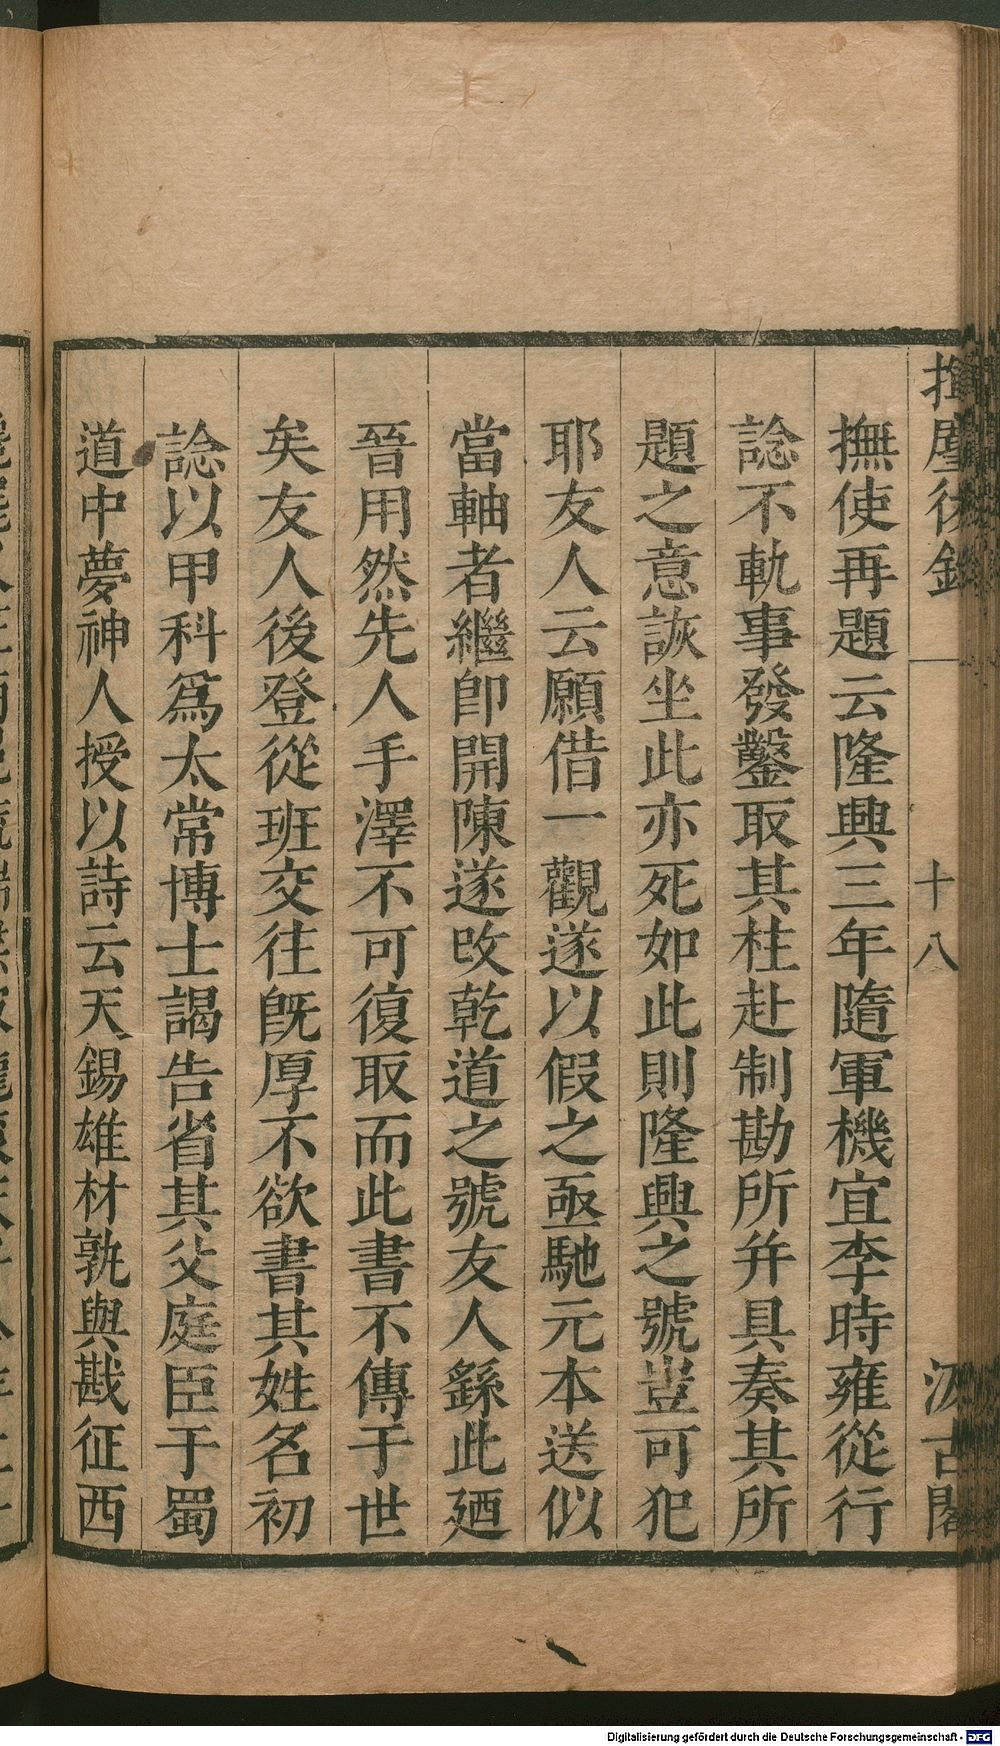 揮麈後錄
十八
汲古閣
撫使再題云隆興三年隨軍機宜李時雍從行
諗不軌事發鑿取其柱赴制勘所幷具奏其所
題之意詼坐此亦死如此則隆興之號豈可犯
耶友人云願借一觀遂以假之亟馳元本送似
當軸者繼卽開陳遂攺乾道之號友人繇此廼
晉用然先人手澤不可復取而此書不傳于世
矣友人後登從班交往旣厚不欲書其姓名初
諗以甲科爲太常博士謁告省其父庭臣于蜀
道中夢神人授以詩云天錫雄材孰與戡征西
Digitalisierung gefördert durch die Deutsche Forschungsgemeinschaft - DFG